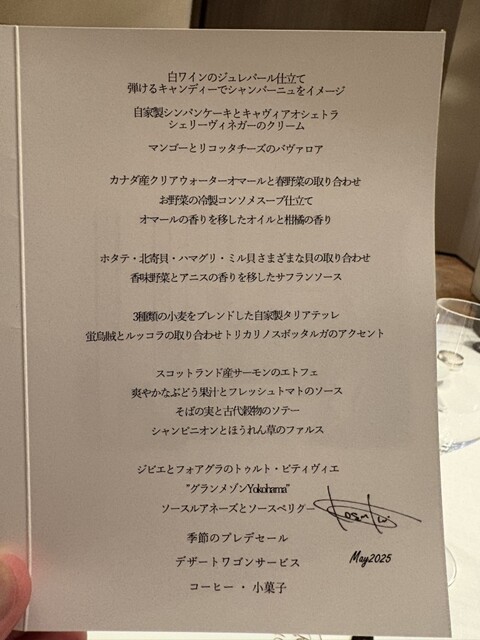 白ワインのジュレパール仕立て
弾けるキャンディーでシャンパーニュをイメージ
自家製シンパンケーキとキャヴィアオシェトラ
シェリーヴィネガーのクリーム
マンゴーとリコッタチーズのバヴァロア
カナダ産クリアウォーターオマールと春野菜の取り合わせ
お野菜の冷製コンソメスープ仕立て
オマールの香りを移したオイルと柑橘の香り
ホタテ・北寄貝・ハマグリ・ミル貝さまざまな貝の取り合わせ
香味野菜とアニスの香りを移したサフランソース
3種類の小麦をブレンドした自家製タリアテッレ
蛍烏賊とルッコラの取り合わせトリカリノスボッタルガのアクセント
スコットランド産サーモンのエトフェ
爽やかなぶどう果汁とフレッシュトマトのソース
そばの実と古代穀物のソテー
シャンピニオンとほうれん草のファルス
ジビエとフォアグラのトゥルト・ピティヴィエ
"グランメゾンYokohama"
ソースルアネーズとソースペリグー
季節のプレデセール
デザートワゴンサービス
May2025
コーヒー ・ 小菓子